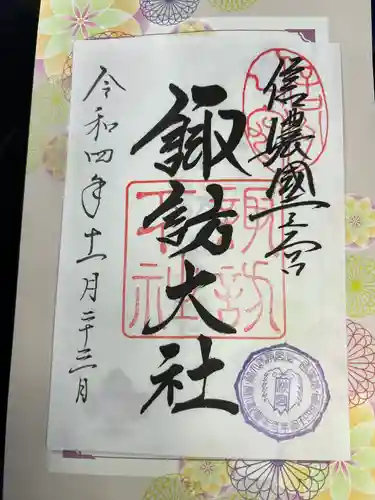 信濃國一之宮
諏訪大社
令和四年十一月二十三日
諏訪
大社